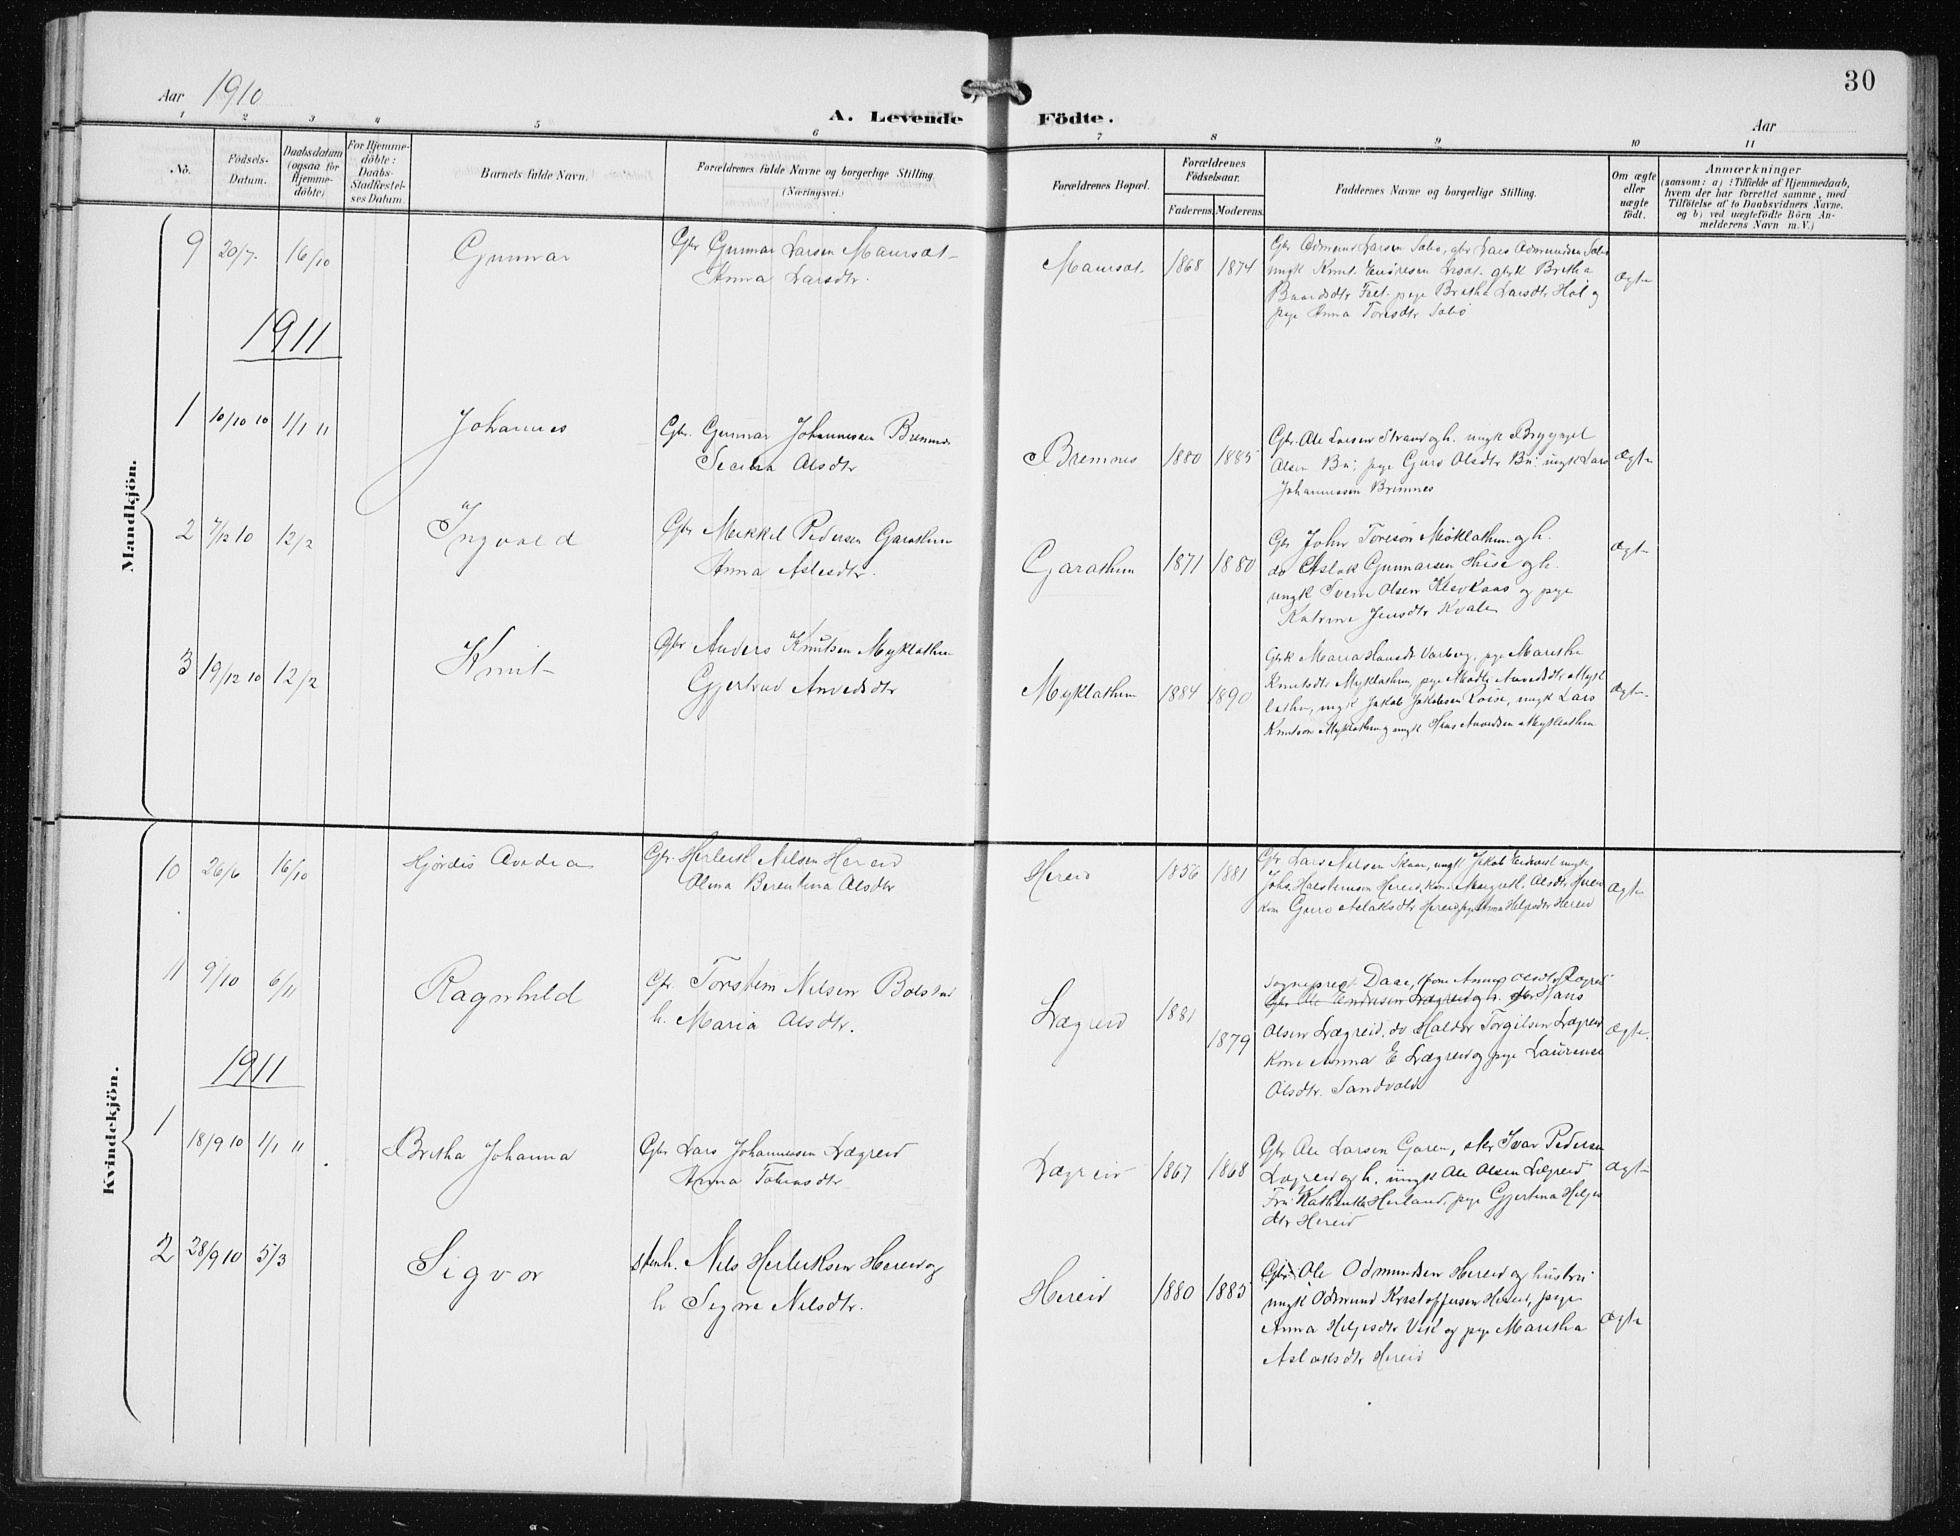 30
Aar 1910
A. Levende Födte.
Aar
1 2 3 4 5 6 7 8 9 10 11
No.
Födsels-Datum.
Daabsdatum (ogsaa för Hjemmedöbte)
For Hjemmedöbte: Daabs-Stadfæstelses Datum.
Barnets fulde Navn.
Forældrenes fulde Navne og borgerlige Stilling (Næringsvei.)
Forældrenes Bopæl.
Forældrenes Födselsaar.
Faderens. Moderens.
Faddernes Navne og borgerlige Stilling.
Om ægte eller uægte födt.
Anmærkninger
(saasom: a) i Tilfælde af Hjemmedaab,
hvem der har forrettet samme, med
Tilföielse af to Daabsvidners Navne.
og b) ved uægtefödte Börn Anmelderens Navn m. V.)
Mandkjön.
9 20/7. 16/10 Gunnar
Gbr Gunnar Larsen Maursæt
Anna Larsdtr.
Maursæt. 1868 1874
Gbr Odmund Larsen Sæbø, gbr Lars Odmundsen Sæbø
ungk Knut
Baardsdtr pige Bretha Larsdtr Høl og
pige Anna Toresdtr Sæbø
ægte
1911
1 10/10 10 1/1 11 Johannes
Gbr. Gunnar Johannessen Bremnes
Olsdtr
Bremnes 1880 1885
Gbr. Ole Larsen Strand og h. ungk
Olsen Bu, pige Guro Olsdtr Bu. ungk Lars
Johannessen Brimnes
ægte
2 7/12 10 12/2 Ingvald
Gbr Mikkel Pedersen Garathun
Anna Aslesdtr.
Garathun 1871 1880
Gbr John Toreson Möklathun og h.
do Aslak Gunnarsen Huse og h.
ungk Svein Olsen og pige
Katrine Jensdtr Kvale
ægte
3 19/12 10 12/2 Knut
Gbr Anders Knutsen Myklathun
Gjertrud Anvedsdtr
Myklathun 1884 1890
Gbrk Maria Hansdt Varberg, pige Maretha
Knutsdtr Myklathun, pige Anvedsdtr Myk
lathun, ungk Jakob Jakobsen ungk Lars
Knutson Myklathun og ungk Hans Anvedsen Myklathun
ægte
Kvindekjön.
10 26/6 16/10 Hjördis
Gbr. Herleik Nilsen Hereid
Olina Berentina Olsdtr
Hereid 1856 1881
Gbr Lars Nilsen Skaar, ungk Jakob
Joh. Halsteinsen Hereid, kone Margret. Olsdtr Hereid
kone Guro Aslaksdtr Hereid pige Anna Helgesdtr Hereid
ægte
11 9/10 6/11 Ragnhild
Gbr. Torstein Nilsen Bolstad
h. Maria Olsdtr.
Lægreid 1881 1879
Sogneprest Daae,
Gbr Ole Endresen Lægreid og h. gbr Hans
Olsen Lægreid. do Haldor Torgilsen Lægreid
Kone Anna E Lægreid og pige Laurense
Olsdtr. Sandvold
ægte.
1911
1 18/9 10 1/1 11 Bretha Johanna
Gbr Lars Johannessen Lægreid
Anna Tobiasdtr
Lægreid 1867 1868
Gbr Ole Larsen Garen, Ivar Pedersen
Lægreid og h. ungk Ole Olsen Lægreid
Fru Kathinka Herland, pige Gjertina Helges
dtr Hereid
ægte
2 28/9 10 5/3 Sigvor
Nils Herleiksen Hereid og
h Signe Nilsdtr.
Hereid 1880 1885
Gbr. Ole Odmundsen Hereid og hustru
ungk Odmund Kristoffersen Hereid, pige
Anna Helgesdtr Vik og pige Maretha
Aslaksdtr Hereid
ægte